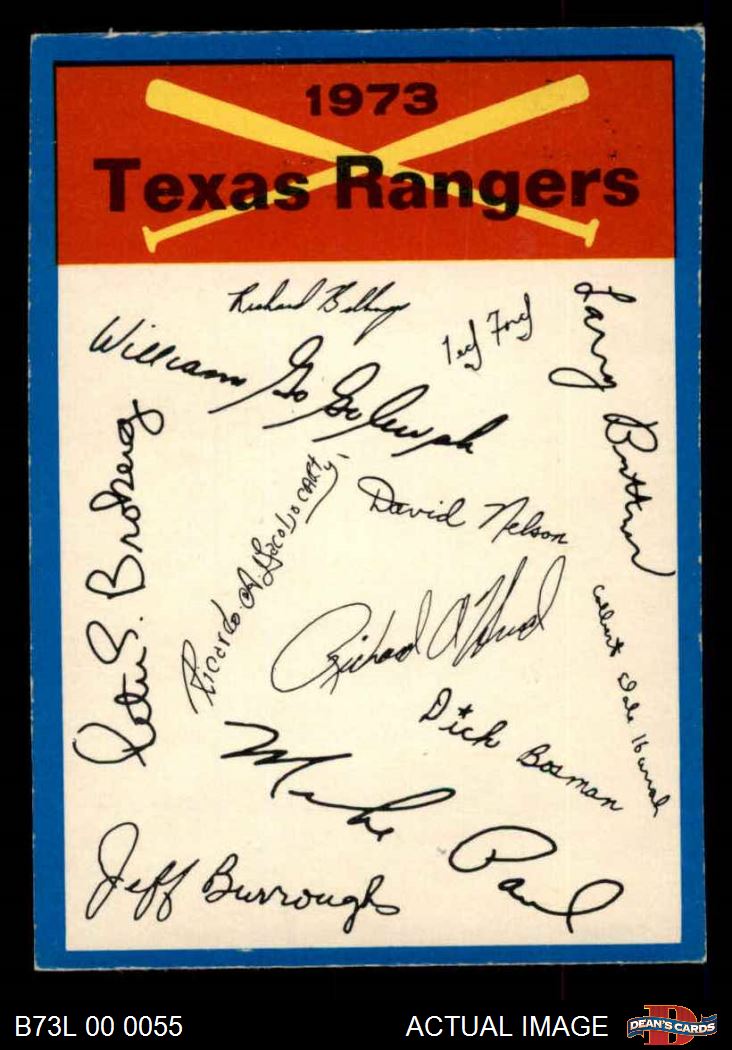 1973
Texas Rangers
Richard Billings
Ted Ford
Larry Biittner
William G. Gogolewski
Peter S. Broberg
Ricardo A. Jacobo CARTY
David Nelson
Richard A
Dick Bosman
Dale
Mike Paul
Jeff Burroughs
B73L 00 0055
ACTUAL IMAGE
DEAN'S CARDS